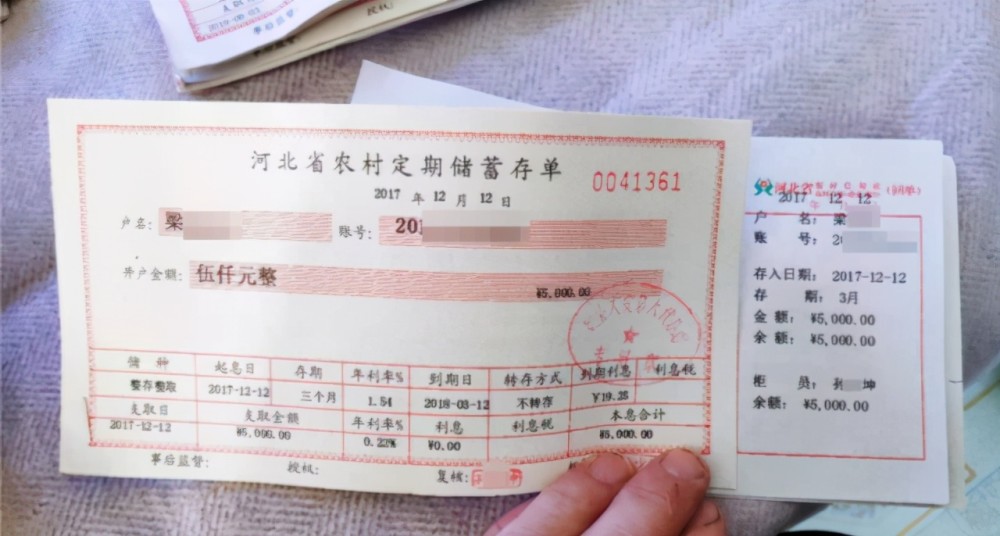 授权:
河北省农村定期储蓄存单
0041361
2017 年 12 月 12 日
户名: 梁
账号: 201
开户金额: 伍仟元整
¥5,000.00
储种 起息日 存期 年利率% 到期日 转存方式 到期利息 利息税
整存整取 2017-12-12 三个月 1.54 2018-03-12 不转存 ¥19.25
支取日 支取金额 年利率% 利息 利息税 本息合计
2017-12-12 ¥5,000.00 0.23% ¥0.00 ¥5,000.00
事后监督: 授权: 复核:
河北省 (回单)
2017 年 12 12
户 名: 梁
账 号: 20
存入日期: 2017-12-12
存 期: 3月
金额: ¥5,000.00
余额: ¥5,000.00
柜 员: 坤
余额: ¥5,000.00